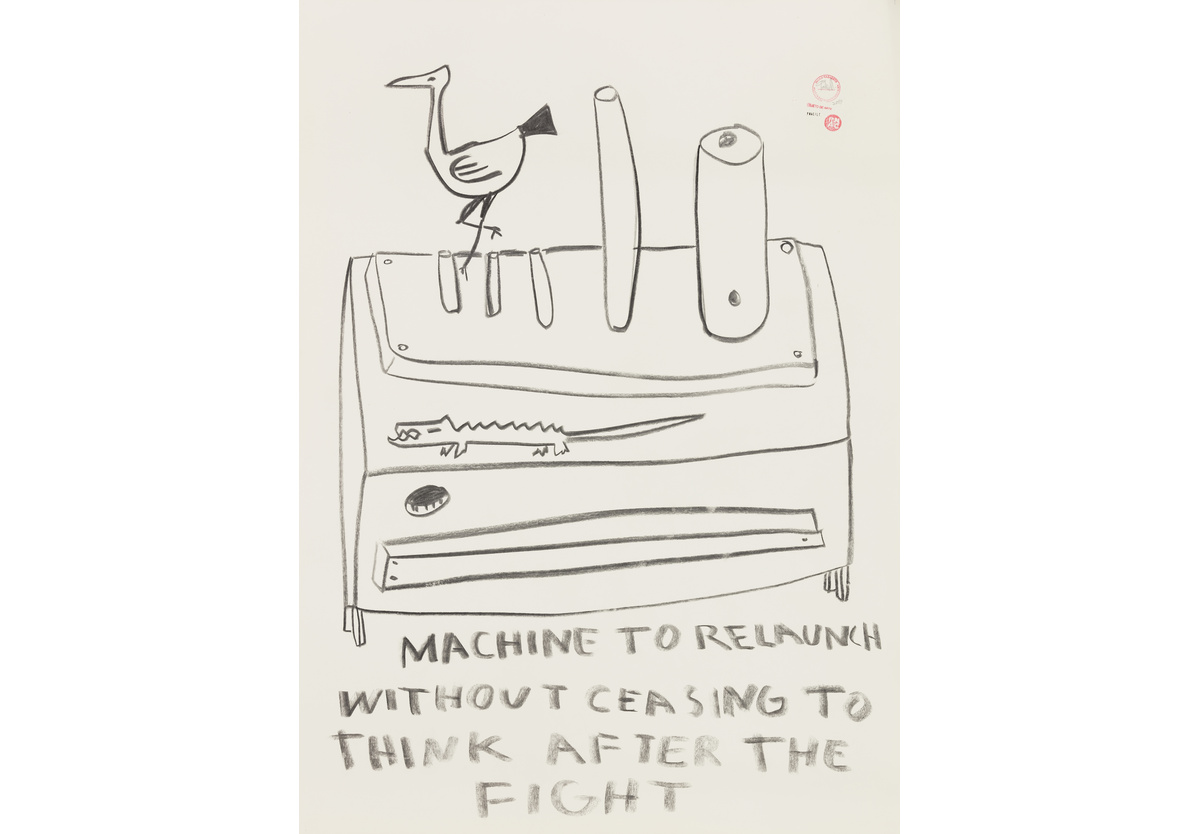 MACHINE TO RELAUNCH
WITHOUT CEASING TO
THINK AFTER THE
FIGHT